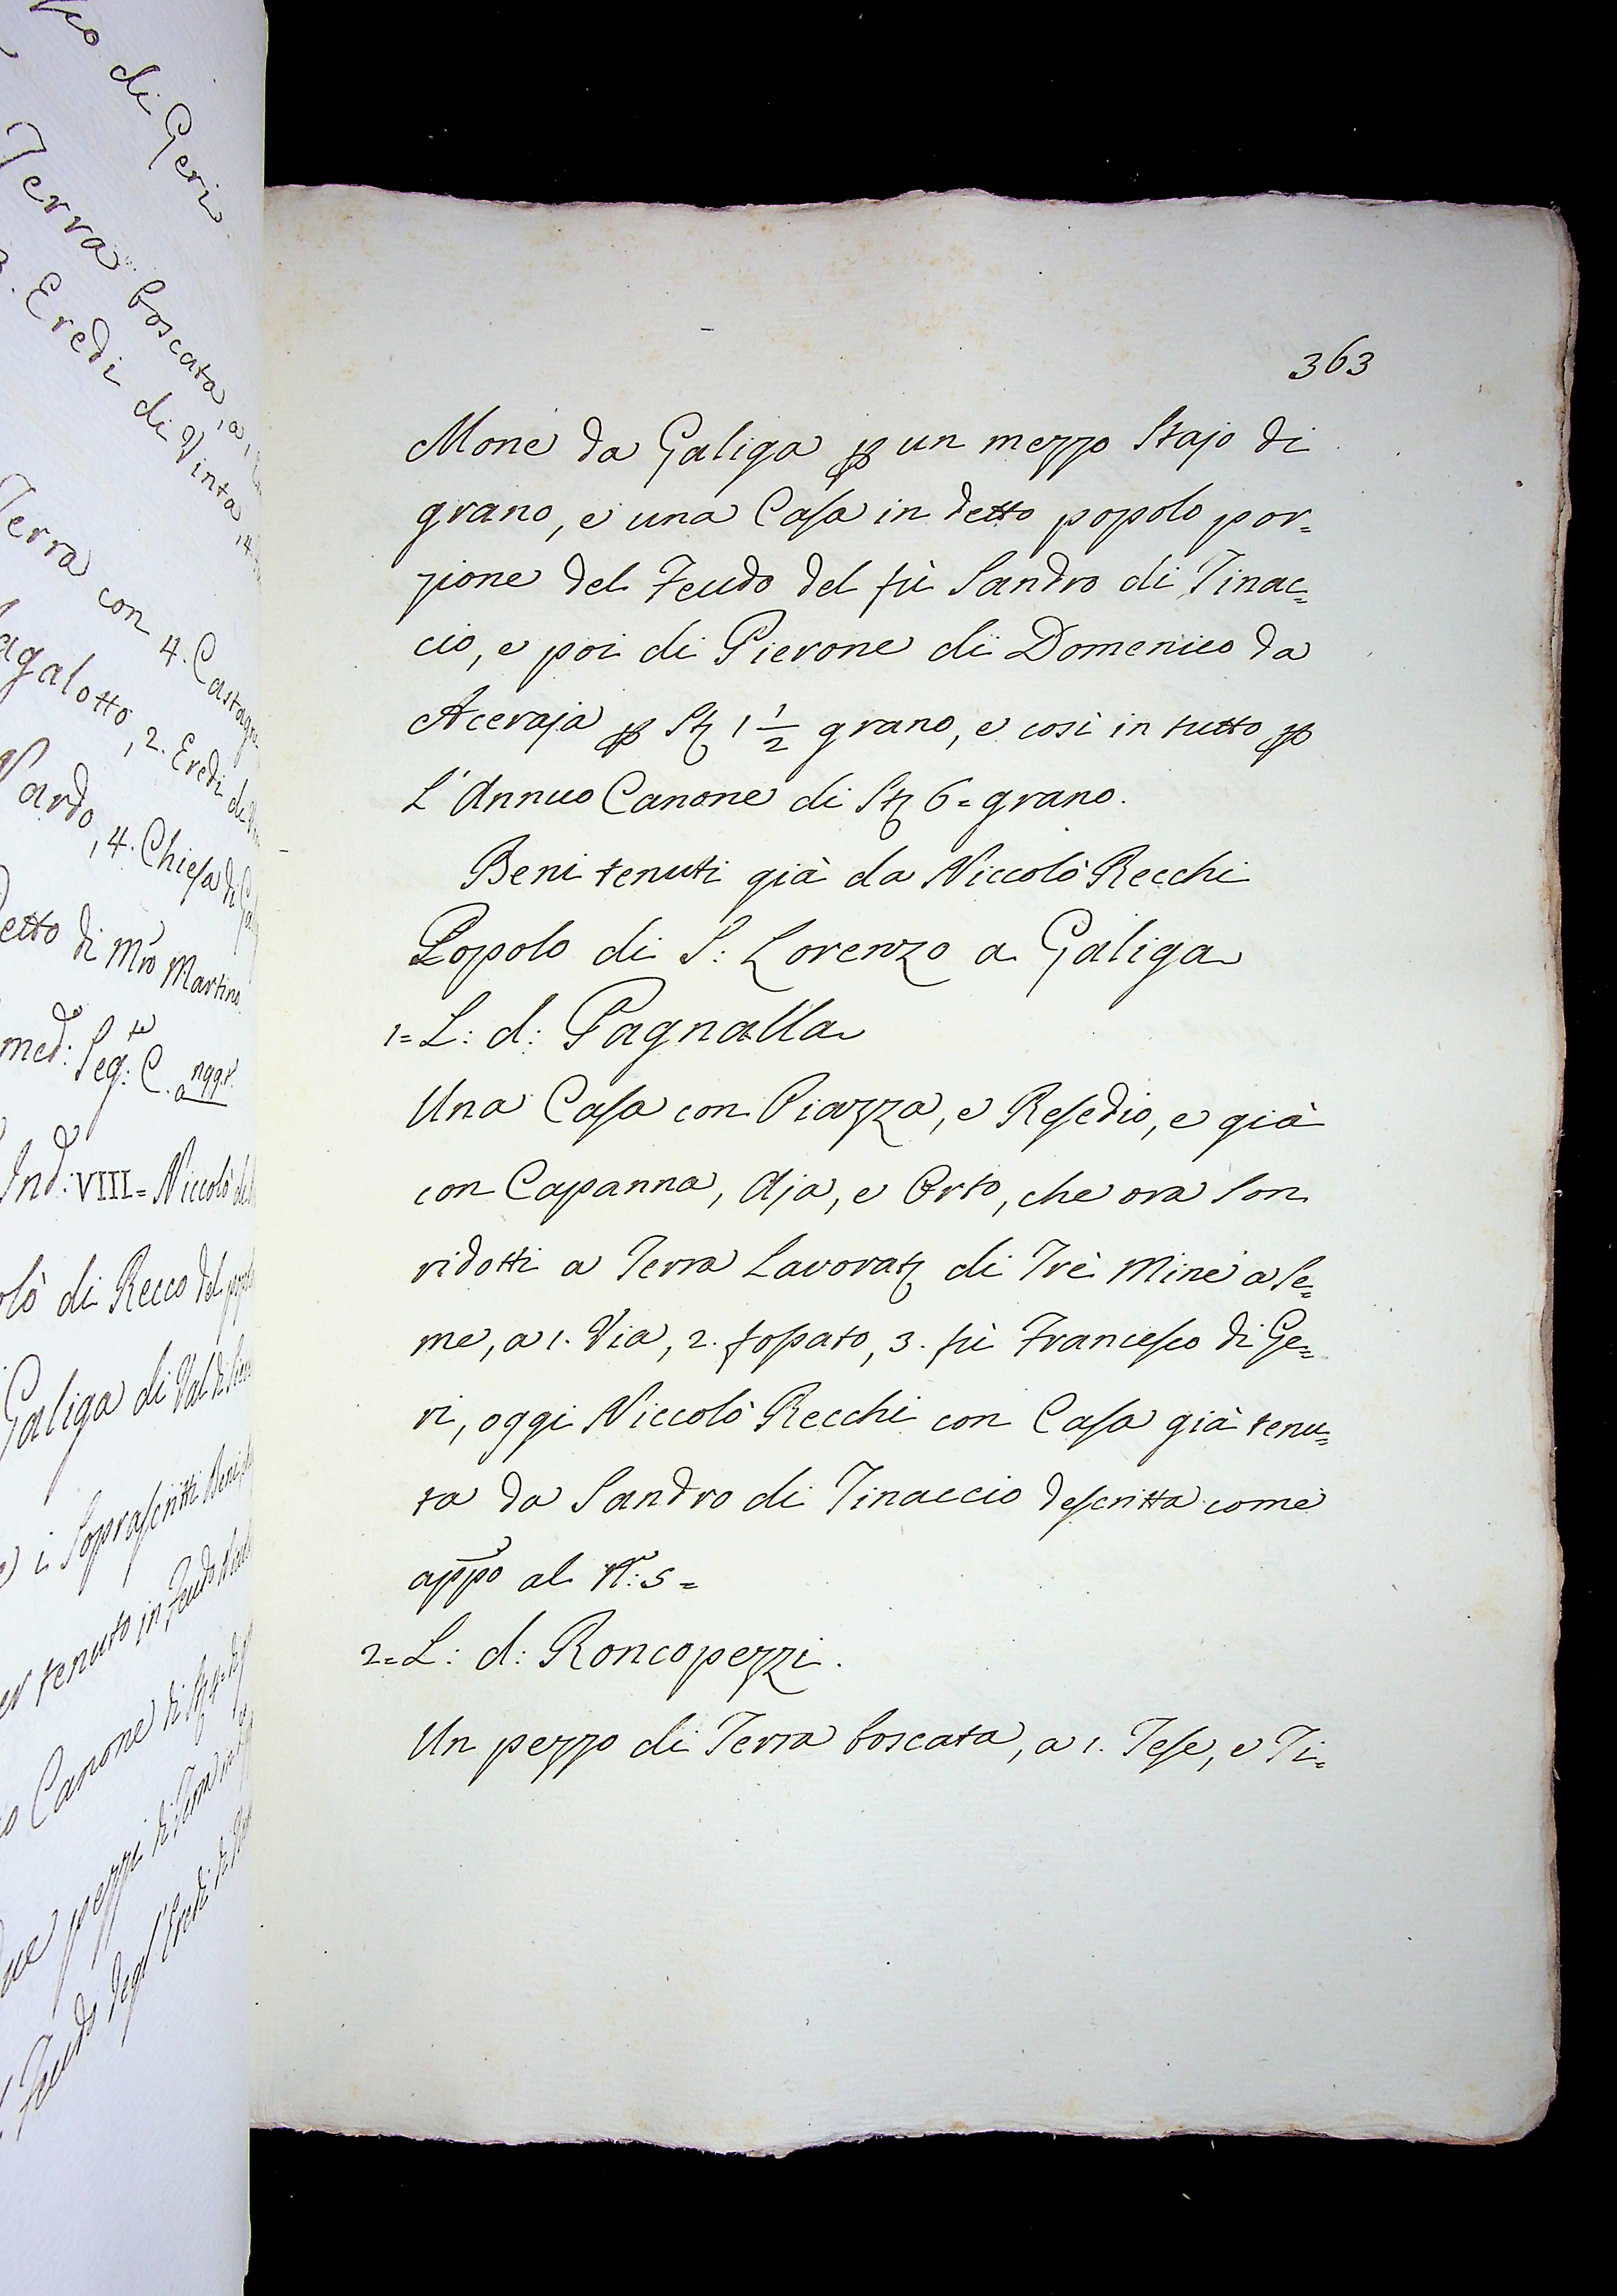 di Geri
Terra boscata, a,
3. Eredi di Vinta, 4.
Terra con 4. Castagni
agalotto, 2. Eredi di
Nardo, 4. Chiesa di
etto di Mro Martino
med: Seg:te C. a
Ind: VIII= Niccolò di
lò di Recco del
Galiga di Val di
i Soprascritti Beni
tenuto in feudo
Canone di
pezzi di Terra
Feudo degl'Eredi di
363
Mone da Galiga ꝑ un mezzo Stajo di
grano, e una Casa in detto popolo por=
zione del Feudo del fù Sandro di Tinac=
cio, e poi di Pierone di Domenico da
Aceraja ꝑ Stª 1 1/2 grano, e così in tutto ꝑ
L'Annuo Canone di Stª 6= grano.
Beni tenuti già da Niccolò Recchi
Popolo di S: Lorenzo a Galiga
1= L: d: Pagnalla
Una Casa con Piazza, e Resedio, e già
con Capanna, Aja, e Orto, che ora son
ridotti a Terra Lavoratª di Trè Mine a se=
me, a 1. Via, 2. fossato, 3. fù Francesco di Ge=
ri, oggi Niccolò Recchi con Casa già tenu=
ta da Sandro di Tinaccio descritta come
appo al N: 5=
2= L: d: Roncopezzi.
Un pezzo di Terra boscata, a 1. Tese, e Ti=